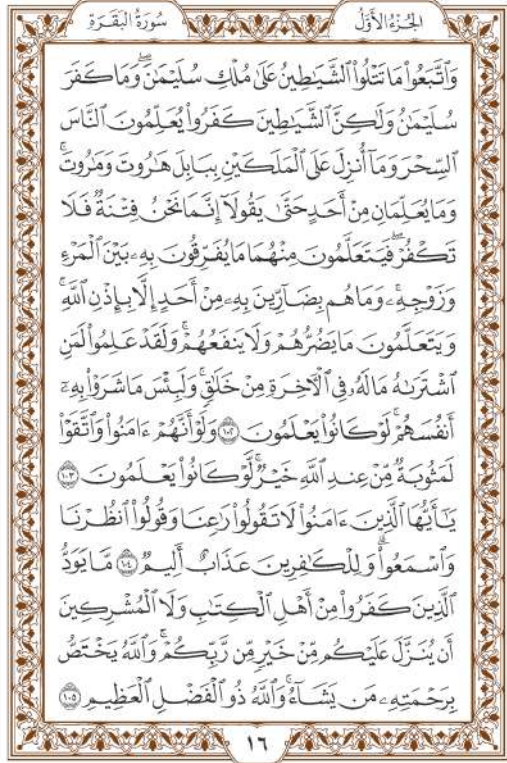 سُورَةُ البَقَرَةِ الجُزْءُ الأَوَّلُ
وَٱتَّبَعُوا۟ مَا تَتْلُوا۟ ٱلشَّيَـٰطِينُ عَلَىٰ مُلْكِ سُلَيْمَـٰنَ ۖ وَمَا كَفَرَ
سُلَيْمَـٰنُ وَلَـٰكِنَّ ٱلشَّيَـٰطِينَ كَفَرُوا۟ يُعَلِّمُونَ ٱلنَّاسَ
ٱلسِّحْرَ وَمَآ أُنزِلَ عَلَى ٱلْمَلَكَيْنِ بِبَابِلَ هَـٰرُوتَ وَمَـٰرُوتَ ۚ
وَمَا يُعَلِّمَانِ مِنْ أَحَدٍ حَتَّىٰ يَقُولَآ إِنَّمَا نَحْنُ فِتْنَةٌ فَلَا
تَكْفُرْ ۖ فَيَتَعَلَّمُونَ مِنْهُمَا مَا يُفَرِّقُونَ بِهِۦ بَيْنَ ٱلْمَرْءِ
وَزَوْجِهِۦ ۚ وَمَا هُم بِضَآرِّينَ بِهِۦ مِنْ أَحَدٍ إِلَّا بِإِذْنِ ٱللَّهِ ۚ
وَيَتَعَلَّمُونَ مَا يَضُرُّهُمْ وَلَا يَنفَعُهُمْ ۚ وَلَقَدْ عَلِمُوا۟ لَمَنِ
ٱشْتَرَىٰهُ مَا لَهُۥ فِى ٱلْـَٔاخِرَةِ مِنْ خَلَـٰقٍ ۚ وَلَبِئْسَ مَا شَرَوْا۟ بِهِۦٓ
أَنفُسَهُمْ ۚ لَوْ كَانُوا۟ يَعْلَمُونَ ١٠٢ وَلَوْ أَنَّهُمْ ءَامَنُوا۟ وَٱتَّقَوْا۟
لَمَثُوبَةٌ مِّنْ عِندِ ٱللَّهِ خَيْرٌ ۖ لَّوْ كَانُوا۟ يَعْلَمُونَ ١٠٣
يَـٰٓأَيُّهَا ٱلَّذِينَ ءَامَنُوا۟ لَا تَقُولُوا۟ رَٰعِنَا وَقُولُوا۟ ٱنظُرْنَا
وَٱسْمَعُوا۟ ۗ وَلِلْكَـٰفِرِينَ عَذَابٌ أَلِيمٌ ١٠٤ مَّا يَوَدُّ
ٱلَّذِينَ كَفَرُوا۟ مِنْ أَهْلِ ٱلْكِتَـٰبِ وَلَا ٱلْمُشْرِكِينَ
أَن يُنَزَّلَ عَلَيْكُم مِّنْ خَيْرٍ مِّن رَّبِّكُمْ ۗ وَٱللَّهُ يَخْتَصُّ
بِرَحْمَتِهِۦ مَن يَشَآءُ ۚ وَٱللَّهُ ذُو ٱلْفَضْلِ ٱلْعَظِيمِ ١٠٥
١٦